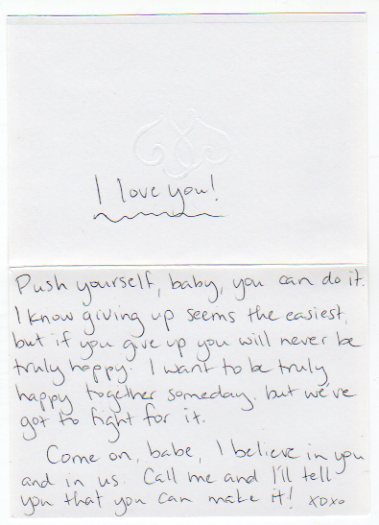 I love you!
Push yourself, baby, you can do it.
I know giving up seems the easiest,
but if you give up you will never be
truly happy. I want to be truly
happy together someday, but we've
got to fight for it.
Come on, babe, I believe in you
and in us. Call me and I'll tell
you that you can make it! xoxo